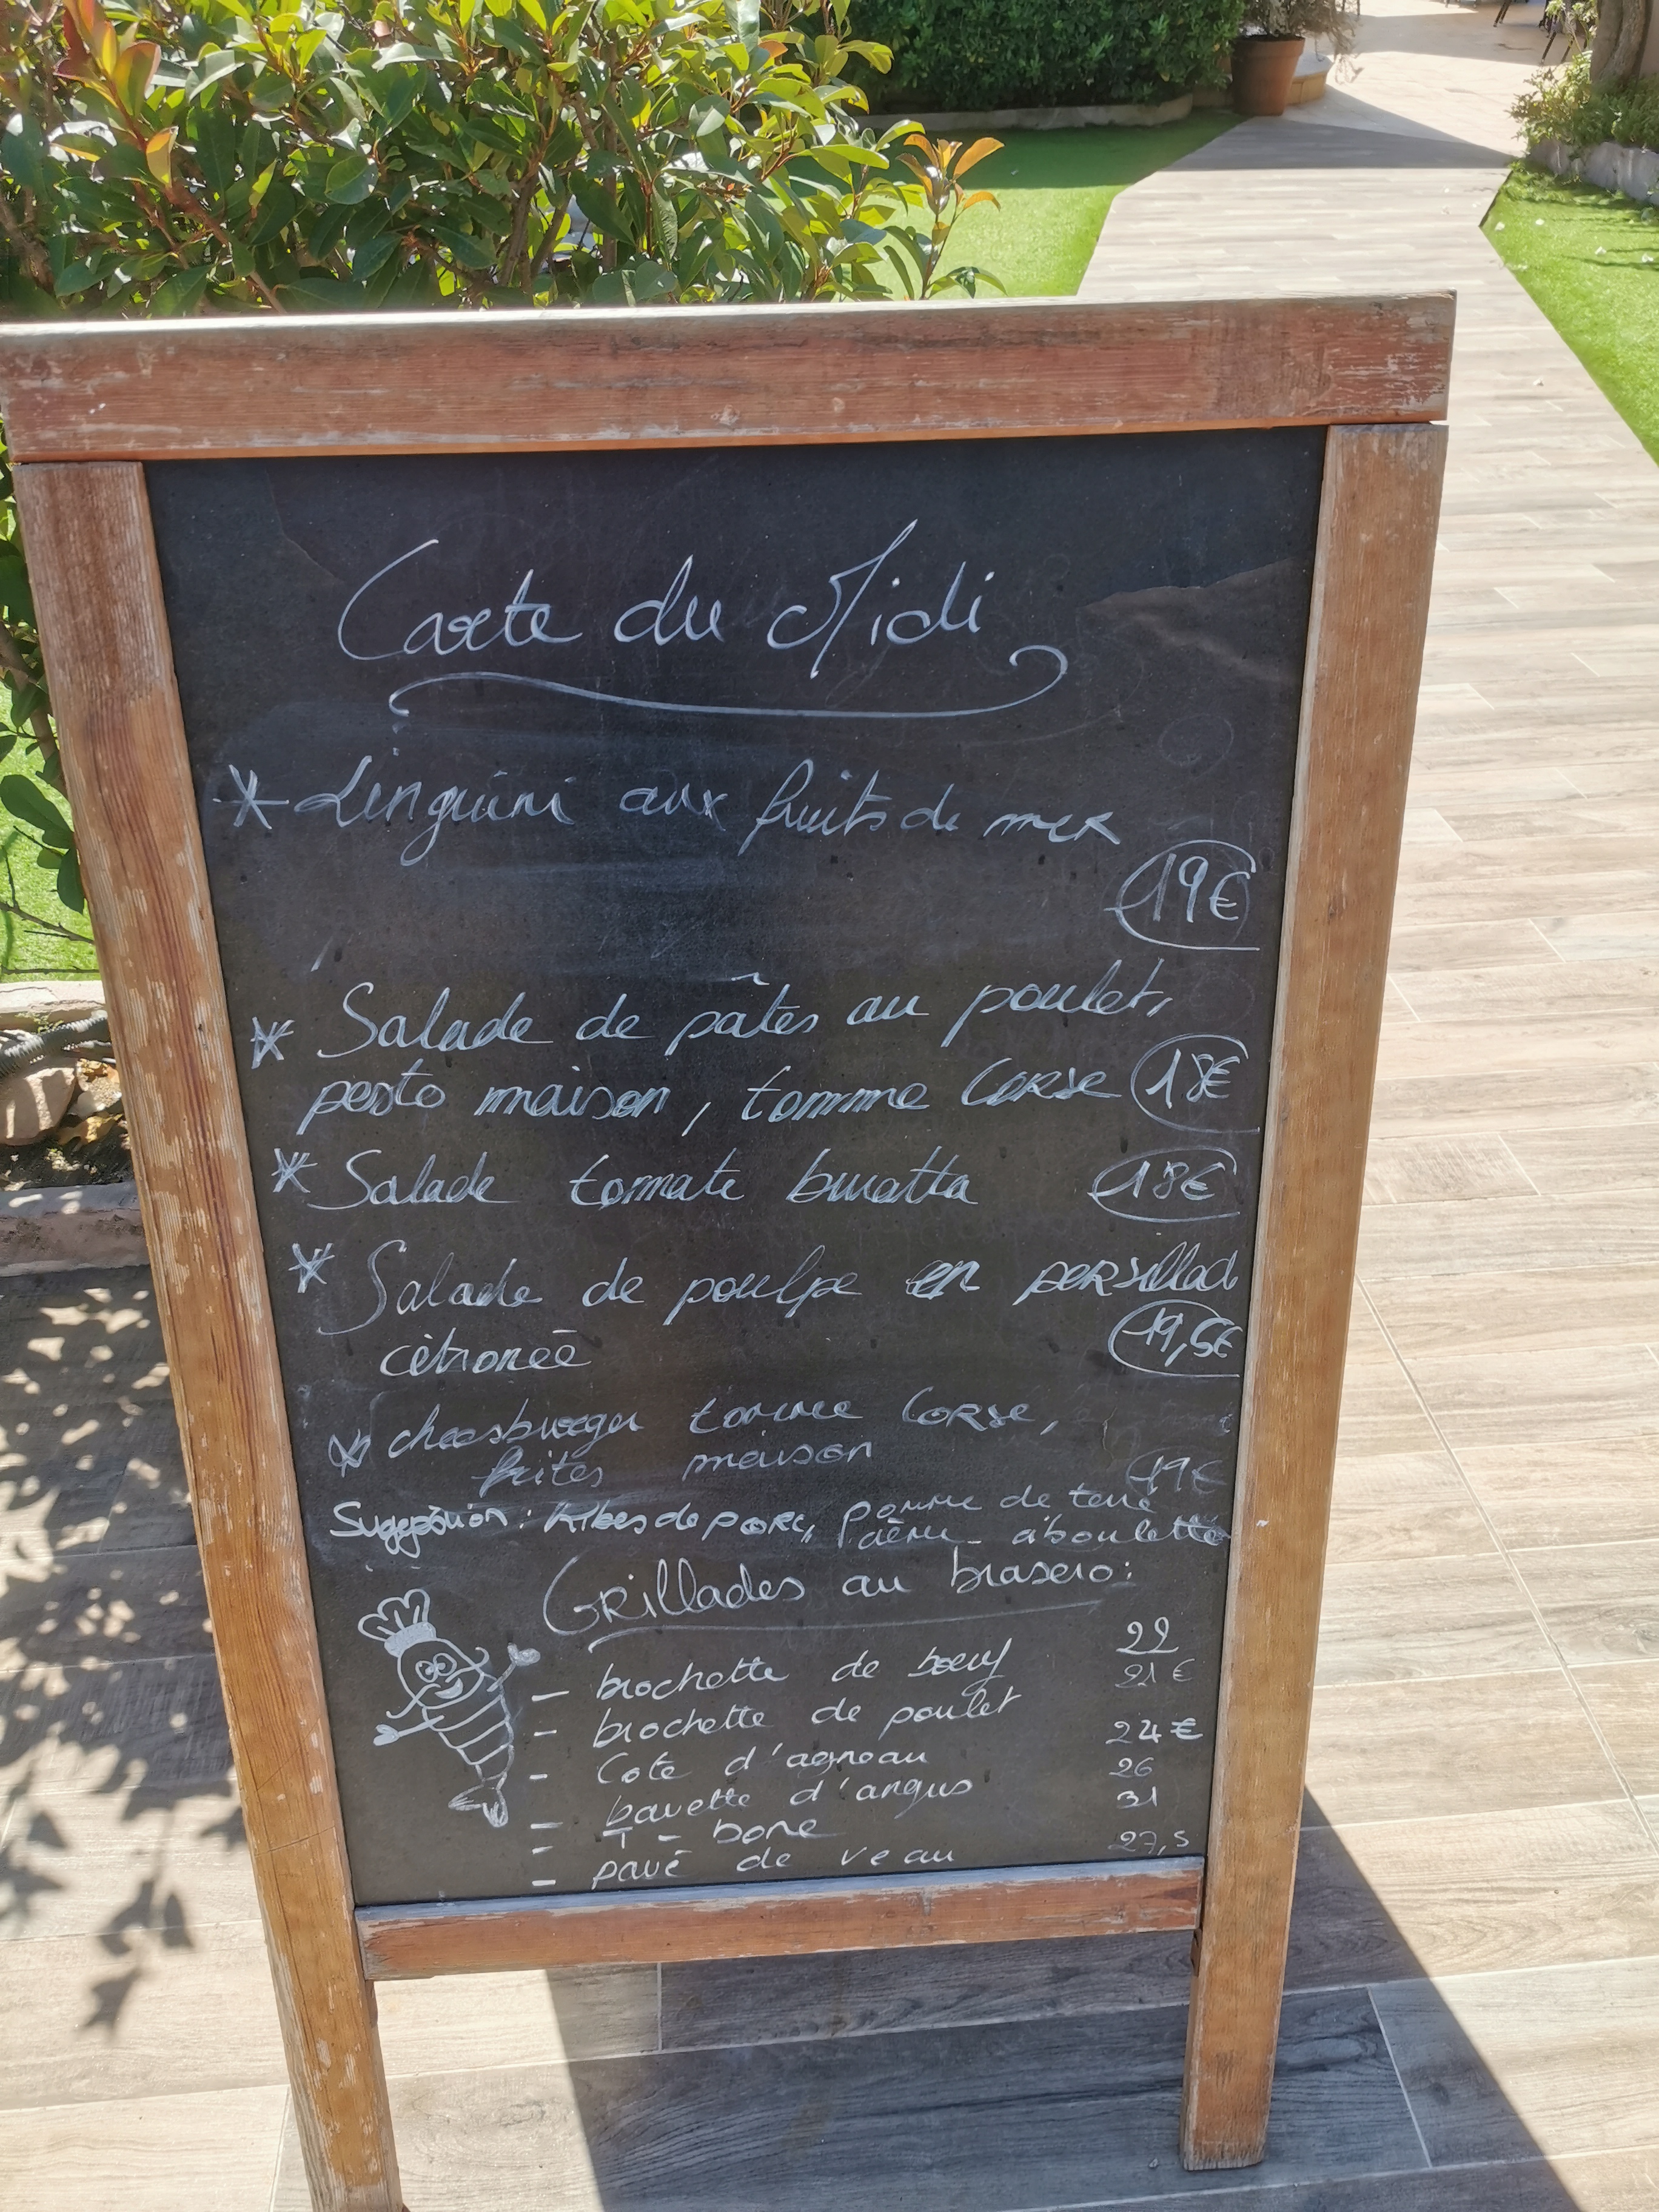 Carte du Midi
* Linguini aux fruits de mer
19€
* Salade de pâtes au poulet,
pesto maison, tomme Corse 18€
* Salade tomate buratta 18€
* Salade de poulpe en persillad
citronée 19,5€
* cheesburger tomme Corse,
frites maison 19€
Suggestion: Ribes de porc, pomme de terre
crème ciboulette
Grillades au brasero:
- brochette de bœuf 22
- brochette de poulet 21€
- Cote d'agneau 24€
- bavette d'angus 26
- T-bone 31
- pavé de veau 27,5